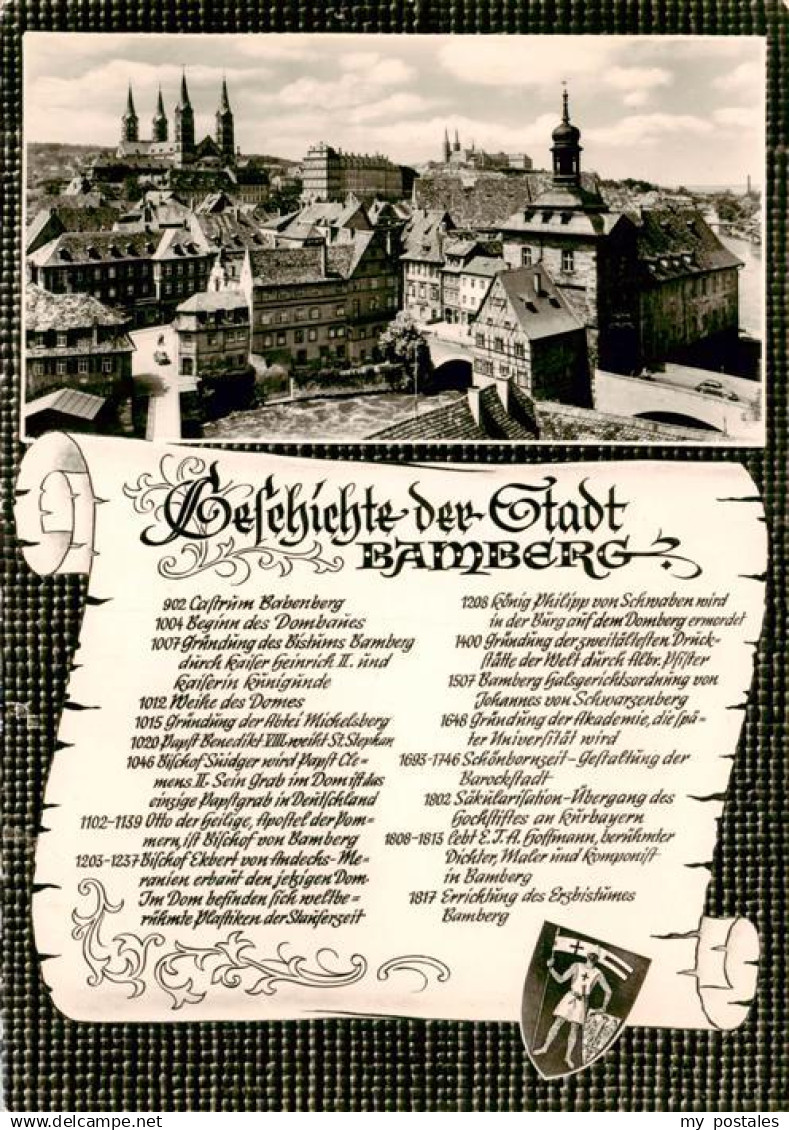 Geschichte der Stadt
BAMBERG
902 Castrum Babenberg
1004 Beginn des Dombaues
1007 Gründung des Bistums Bamberg
durch Kaiser Heinrich II. und
Kaiserin Kunigunde
1012 Weihe des Domes
1015 Gründung der Abtei Michelsberg
1020 Papst Benedikt VIII. weiht St. Stephan
1046 Bischof Suidger wird Papst Cle=
mens II. Sein Grab im Dom ist das
einzige Papstgrab in Deutschland
1102-1139 Otto der Heilige, Apostel der Pom=
mern, ist Bischof von Bamberg
1203-1237 Bischof Ekbert von Andechs-Me=
ranien erbaut den jetzigen Dom
Im Dom befinden sich weltbe=
rühmte Plastiken der Stauferzeit
1208 König Philipp von Schwaben wird
in der Burg auf dem Domberg ermordet
1400 Gründung der zweitältesten Druck=
stätte der Welt durch Albr. Pfister
1507 Bamberg Halsgerichtsordnung von
Johannes von Schwarzenberg
1648 Gründung der Akademie, die spä=
ter Universität wird
1693-1746 Schönbornzeit-Gestaltung der
Barockstadt
1802 Säkularisation-Übergang des
Hochstiftes an Kurbayern
1808-1813 lebt E.T.A. Hoffmann, berühmter
Dichter, Maler und Komponist
in Bamberg
1817 Errichtung des Erzbistumes
Bamberg
my postales